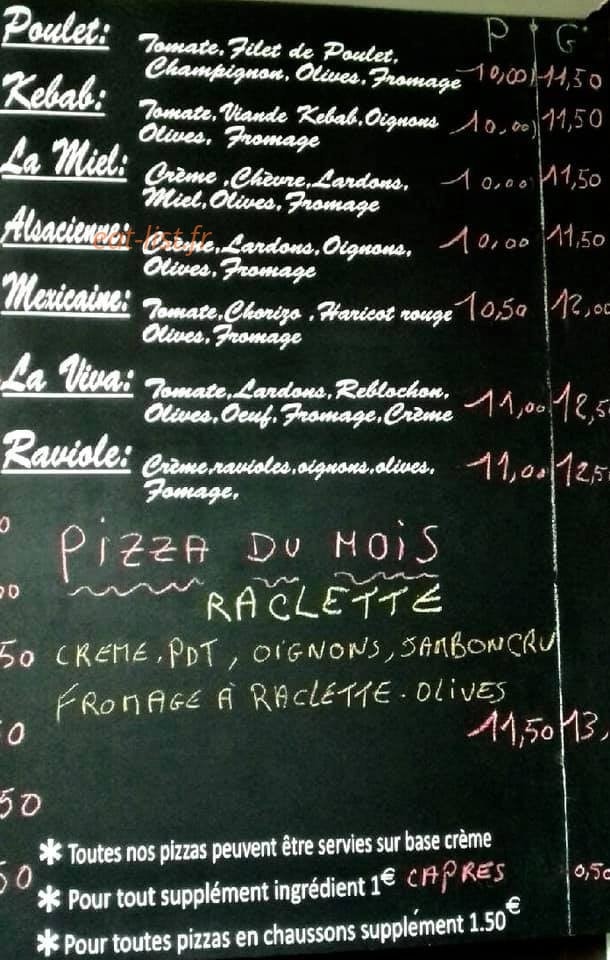 P G
Poulet: Tomate, Filet de Poulet,
Champignon, Olives, Fromage 10,00 11,50
Kebab: Tomate, Viande Kebab, Oignons
Olives, Fromage 10,00 11,50
La Miel: Crème, Chèvre, Lardons,
Miel, Olives, Fromage 10,00 11,50
Alsacienne: Crème, Lardons, Oignons,
Olives, Fromage 10,00 11,50
eat-list.fr
Mexicaine: Tomate, Chorizo, Haricot rouge 10,50 12,00
Olives, Fromage
La Viva: Tomate, Lardons, Reblochon,
Olives, Oeuf, Fromage, Crème 11,00 12,5
Raviole: Crème, ravioles, oignons, olives, 11,00 12,5
Fomage,
PIZZA DU MOIS
RACLETTE
50 CREME, PDT, OIGNONS, JAMBON CRU
FROMAGE À RACLETTE. OLIVES
11,50 13,
50
* Toutes nos pizzas peuvent être servies sur base crème
* Pour tout supplément ingrédient 1€ CAPRES 0,50
* Pour toutes pizzas en chaussons supplément 1.50€